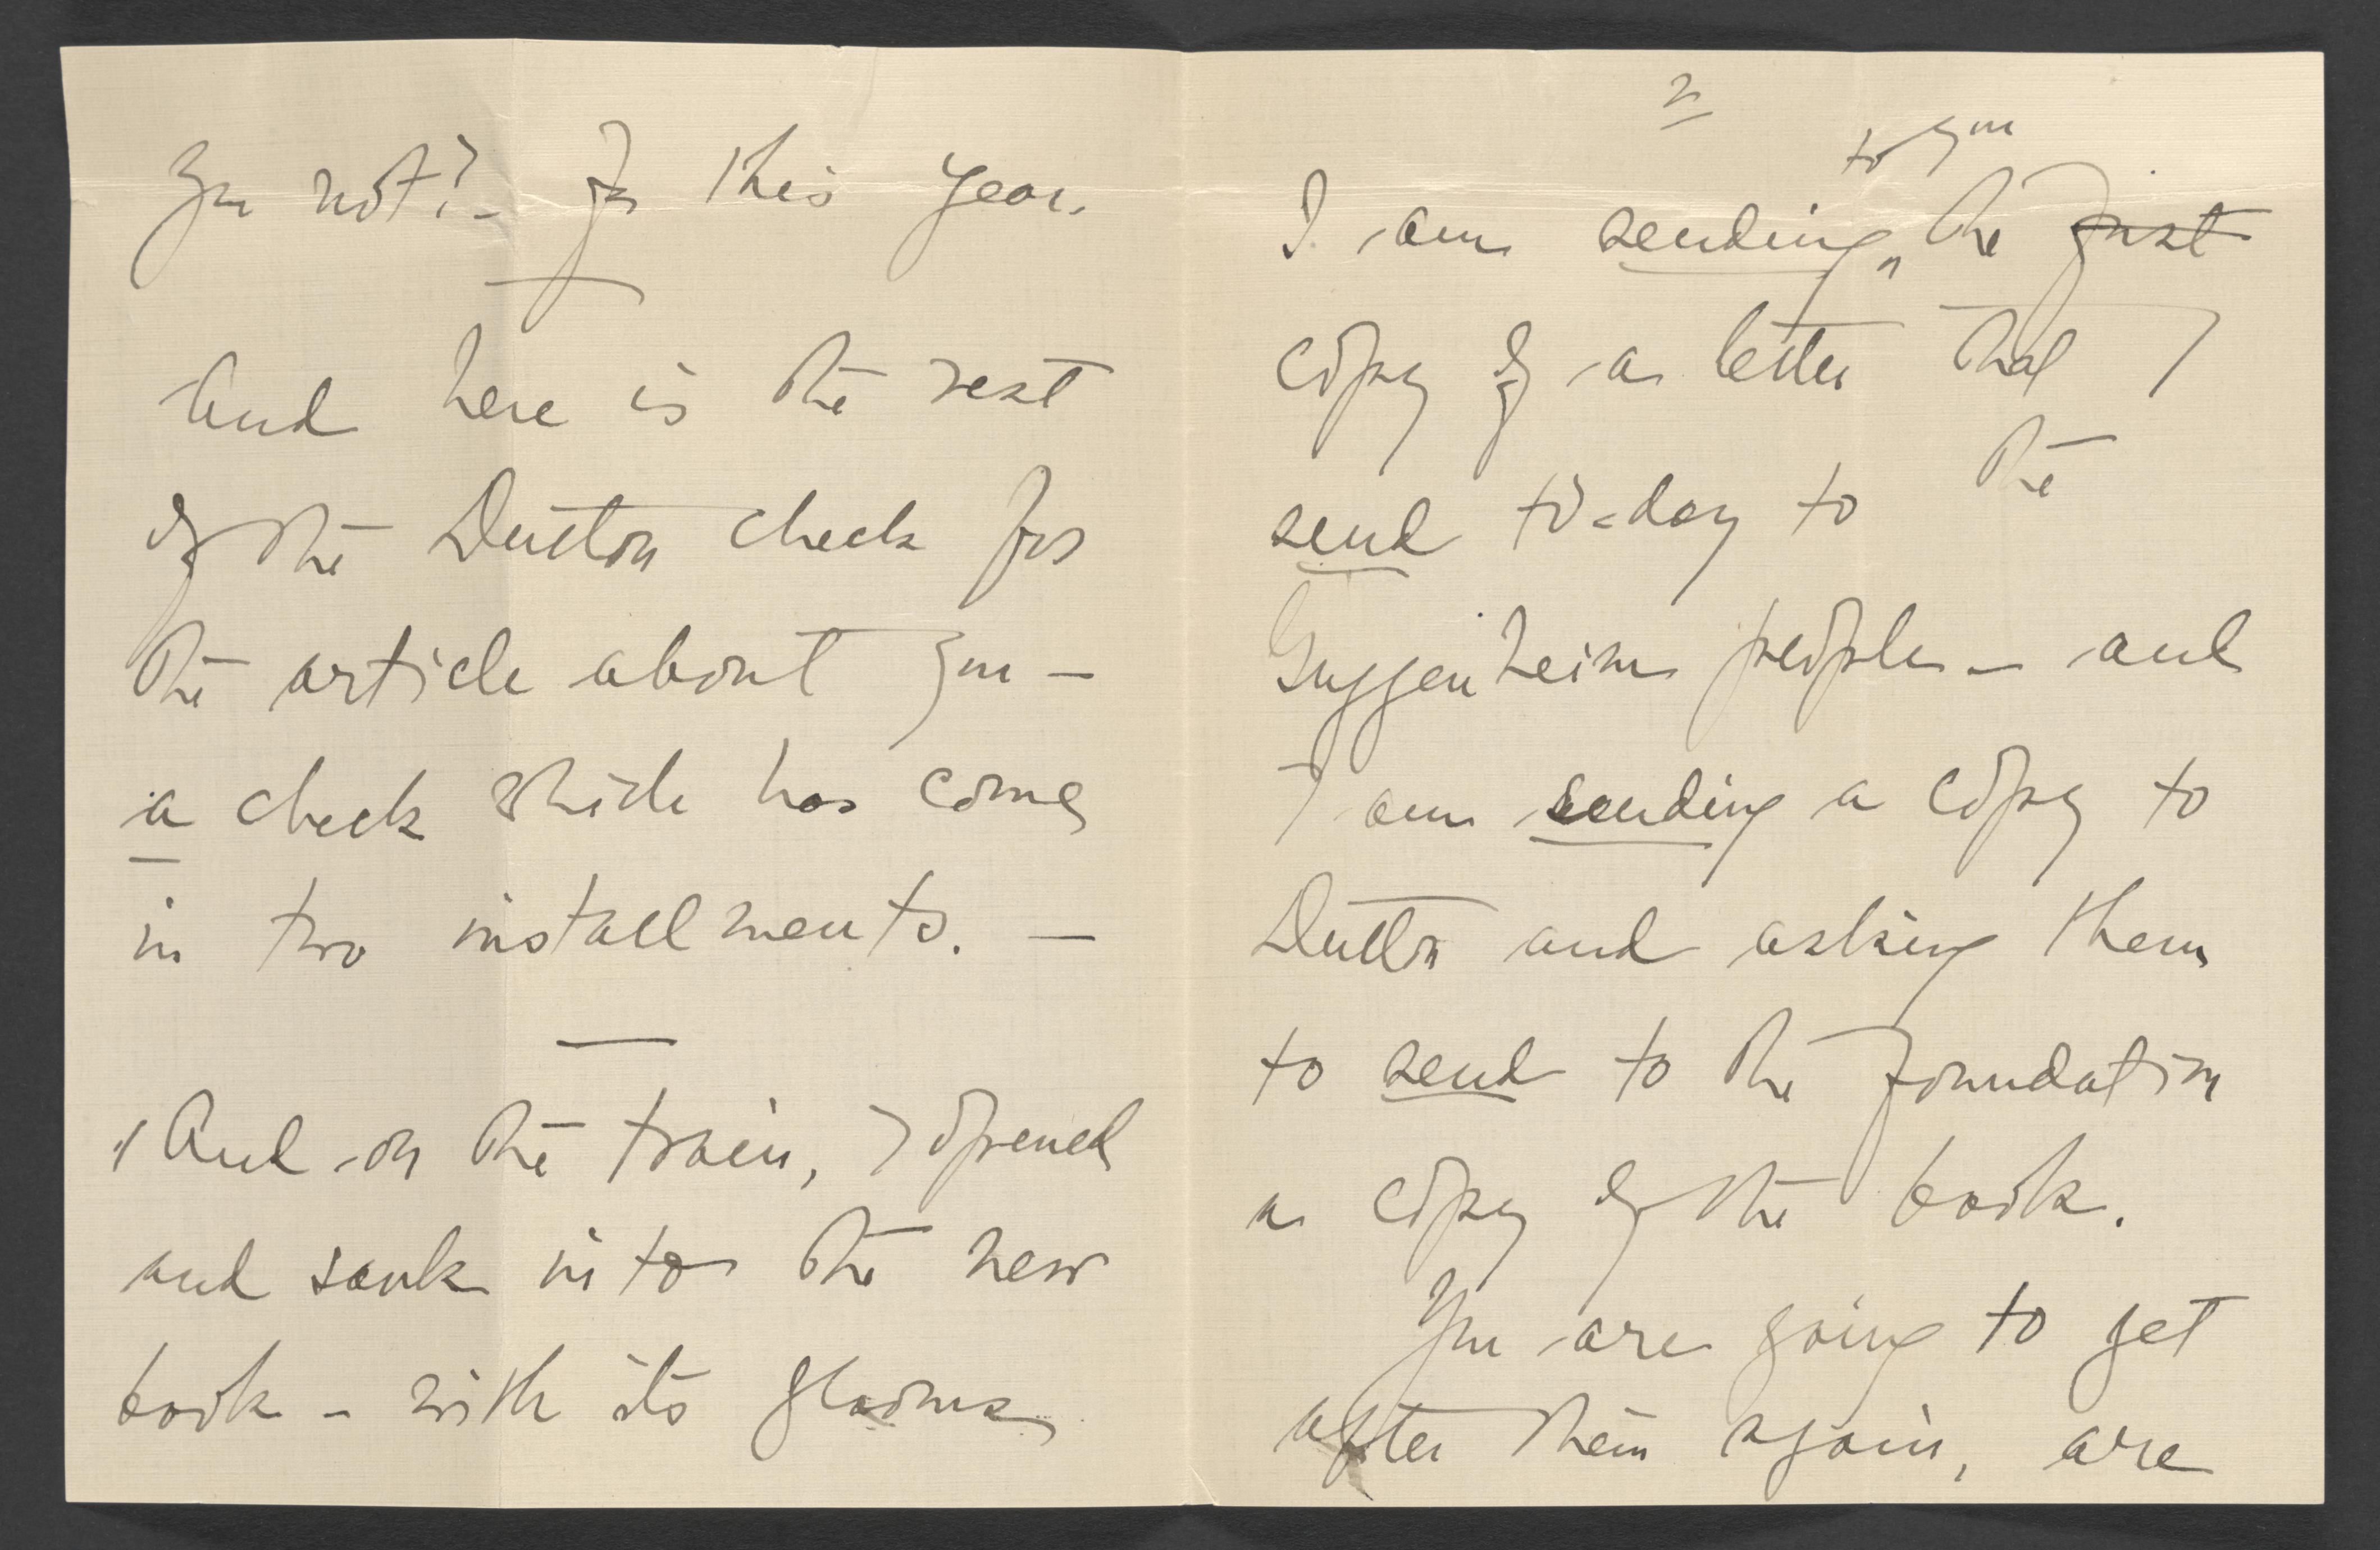 2
to you
I am sending ‸ the first
copy of a letter that I
send to-day to the
Guggenheim people - and
I am sending a copy to
Dutton and asking them
to send to the Foundation
a copy of the book.
You are going to get
after them again, are
you not? - For this year.
And here is the rest
of the Dutton check for
the article about you -
a check which has come
in two installments. -
And on the train, I opened
and sank into the new
book - with its